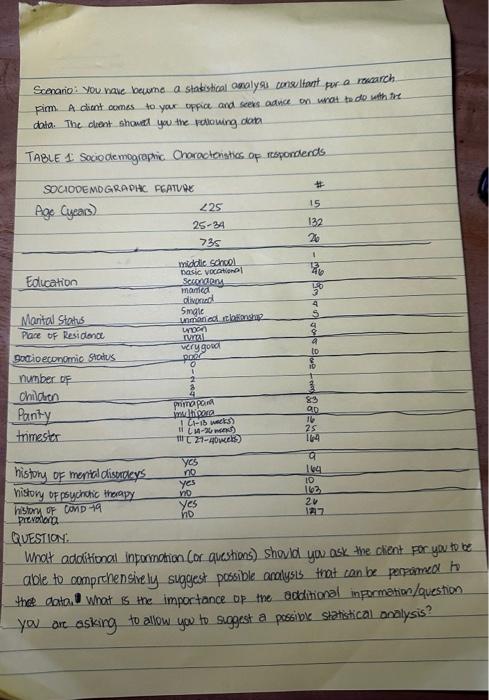 Scenario: You have become a statistical analysis consultant for a research
firm. A client comes to your office and seeks advice on what to do with the
data. The client showed you the following data
TABLE 1: Sociodemographic Characteristics of respondents
SOCIODEMOGRAPHIC FEATURE #
Age (years) <25 15
25-34 132
735 26
middle school 1
basic vocational 13
Education secondary 46
married
divorced 3
single 4
Marital Status unmarried relationship 5
Place of Residence urban 9
rural 8
very good 9
socioeconomic status poor 10
0 8
number of 1 10
2 1
children 3 3
4 3
primapara 83
Parity multipara 90
I (1-13 weeks) 16
trimester II (14-26 weeks) 25
III (27-40 weeks) 164
yes 9
history of mental disorders no 164
yes 10
history of psychotic therapy no 163
history of COVID-19 yes 26
prevalence no 147
QUESTION:
What additional information (or questions) should you ask the client for you to be
able to comprehensively suggest possible analysis that can be performed to
thee data. What is the importance of the additional information/question
you are asking to allow you to suggest a possible statistical analysis?